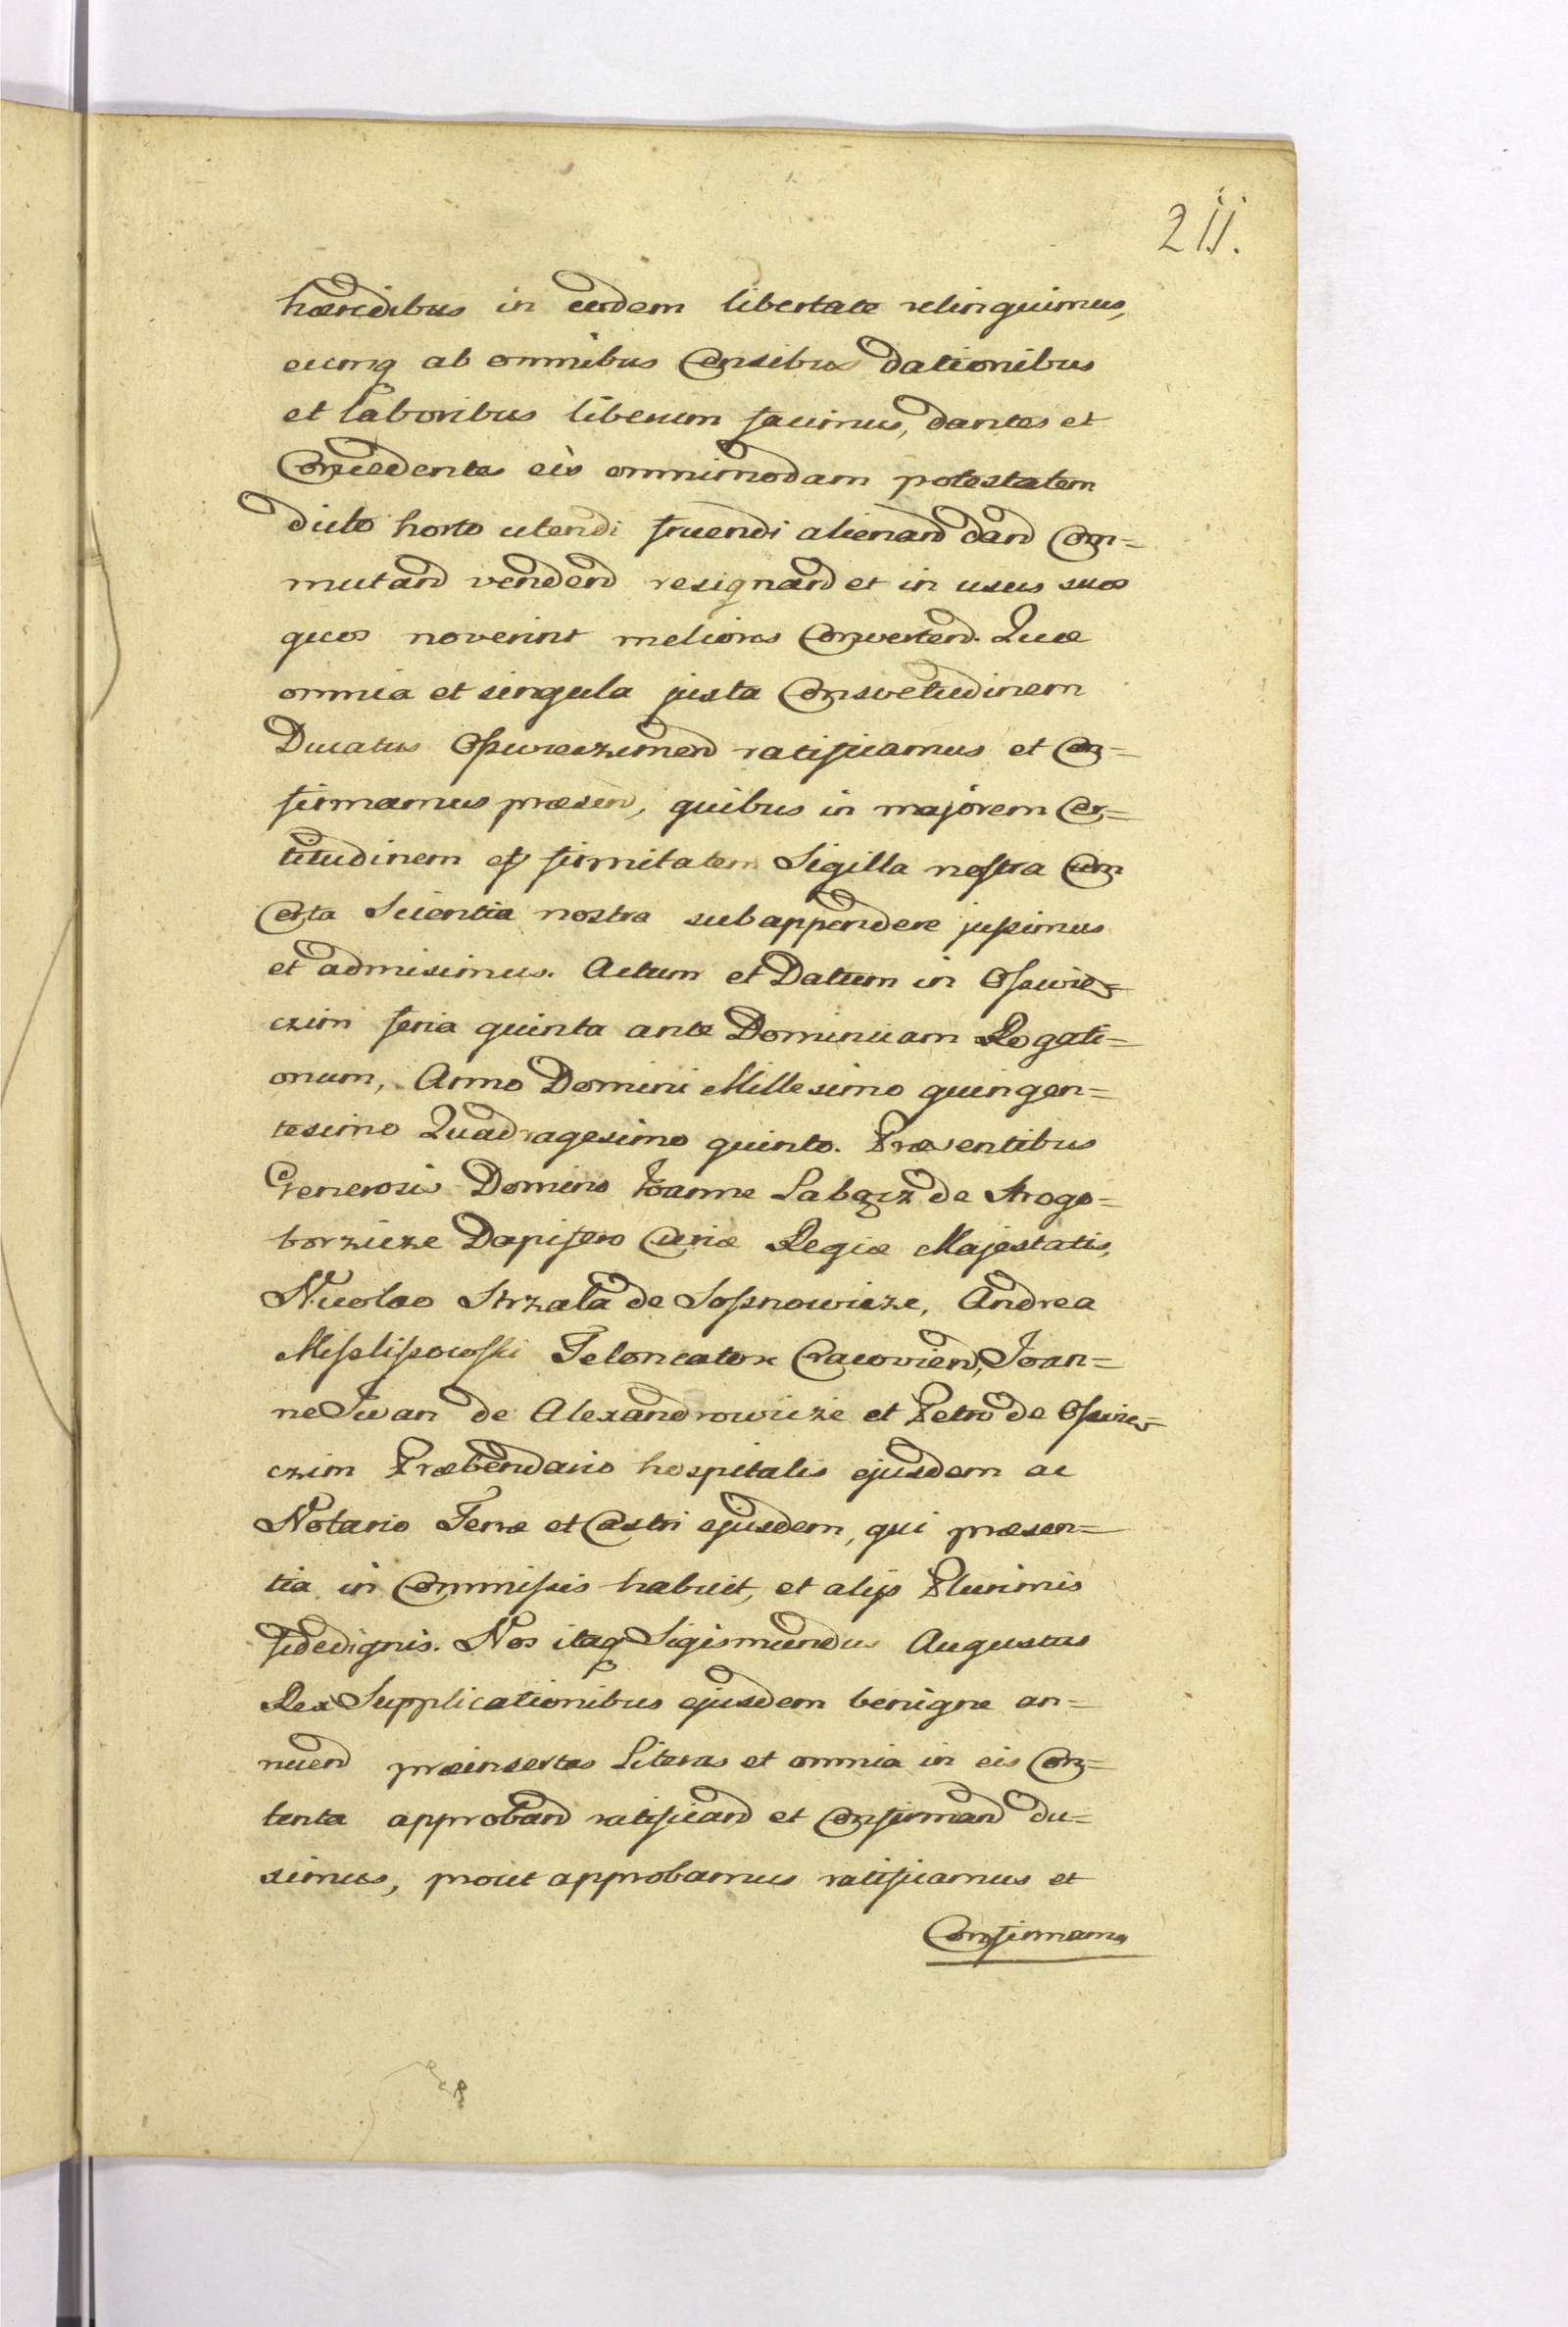 211.
hæredibus in eadem libertate relinquimus,
eumq ab omnibus Censibus dationibus
et laboribus liberum facimus, dantes et
Concedentes eis omnimodam potestatem
dicto horto utendi fruendi alienand dand Com=
mutand vendend resignand et in usus suos
quos noverint meliores Convertend. Quæ
omnia et singula juxta Consvetudinem
Ducatus Osswieczimen ratificamus et Con=
firmamus præsen, quibus in majorem Cer=
titudinem et firmitatem Sigilla nostra cum
Certa Scientia nostra subappendere jussimus
et admisimus. Actum et Datum in Osswie=
czim feria quinta ante Dominicam Rogati=
onum, Anno Domini Millesimo quingen=
tesimo Quadragesimo quinto. Præsentibus
Generosis Domino Joanne Labęcz de
borzicze Dapifero Curiæ Regiæ Majestatis,
Nicolao Strzala de Sossnowicze, Andrea
Teloneatore Cracovien, Joan=
ne Iwan de Alexandrowicze et Petro de Osswie=
czim Præbendario hospitalis ejusdem ac
Notario Terræ et Castri ejusdem, qui præsen=
tia in Commissis habuit, et alijs Plurimis
fidedignis. Nos itaq Sigismundus Augustus
Rex Supplicationibus ejusdem benigne an=
nuend præinsertas Literas et omnia in eis Con=
tenta approband ratificand et Confirmand du=
ximus, prout approbamus ratificamus et
Confirmam9